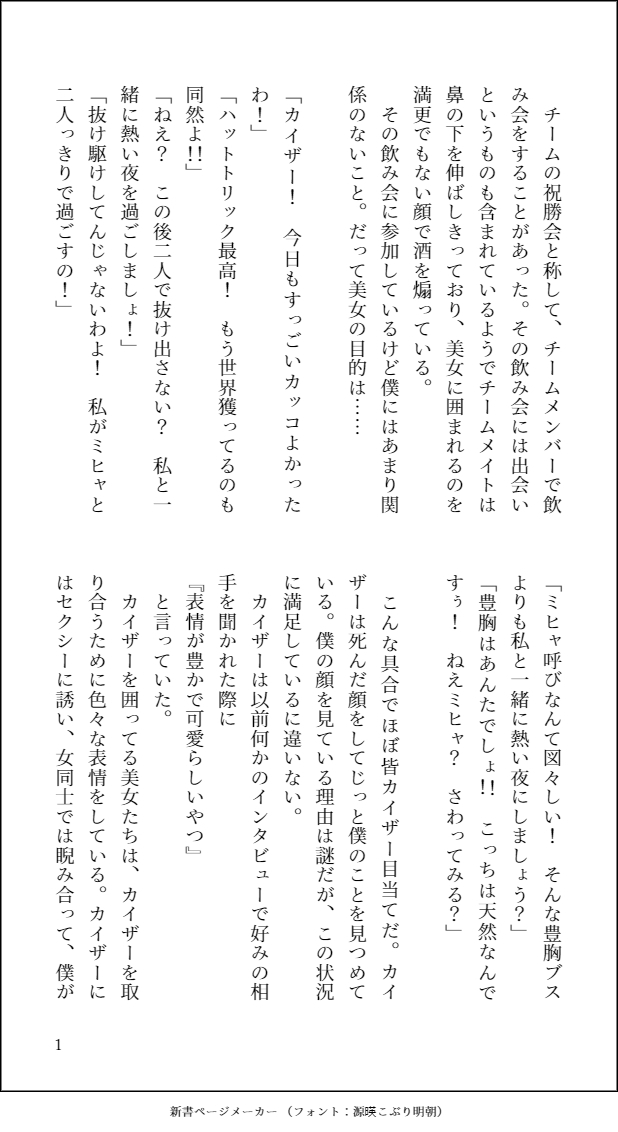 チームの祝勝会と称して、チームメンバーで飲
み会をすることがあった。その飲み会には出会い
というものも含まれているようでチームメイトは
鼻の下を伸ばしきっており、美女に囲まれるのを
満更でもない顔で酒を煽っている。
　その飲み会に参加しているけど僕にはあまり関
係のないこと。だって美女の目的は……
「カイザー！　今日もすっごいカッコよかった
わ！」
「ハットトリック最高！　もう世界獲ってるのも
同然よ!!」
「ねえ？　この後二人で抜け出さない？　私と一
緒に熱い夜を過ごしましょ！」
「抜け駆けしてんじゃないわよ！　私がミヒャと
二人っきりで過ごすの！」
「ミヒャ呼びなんて図々しい！　そんな豊胸ブス
よりも私と一緒に熱い夜にしましょう？」
「豊胸はあんたでしょ!!　こっちは天然なんで
すぅ！　ねえミヒャ？　さわってみる？」
　こんな具合でほぼ皆カイザー目当てだ。カイ
ザーは死んだ顔をしてじっと僕のことを見つめて
いる。僕の顔を見ている理由は謎だが、この状況
に満足しているに違いない。
　カイザーは以前何かのインタビューで好みの相
手を聞かれた際に
『表情が豊かで可愛らしいやつ』
　と言っていた。
　カイザーを囲ってる美女たちは、カイザーを取
り合うために色々な表情をしている。カイザーに
はセクシーに誘い、女同士では睨み合って、僕が
1
新書ページメーカー（フォント：源暎こぶり明朝）